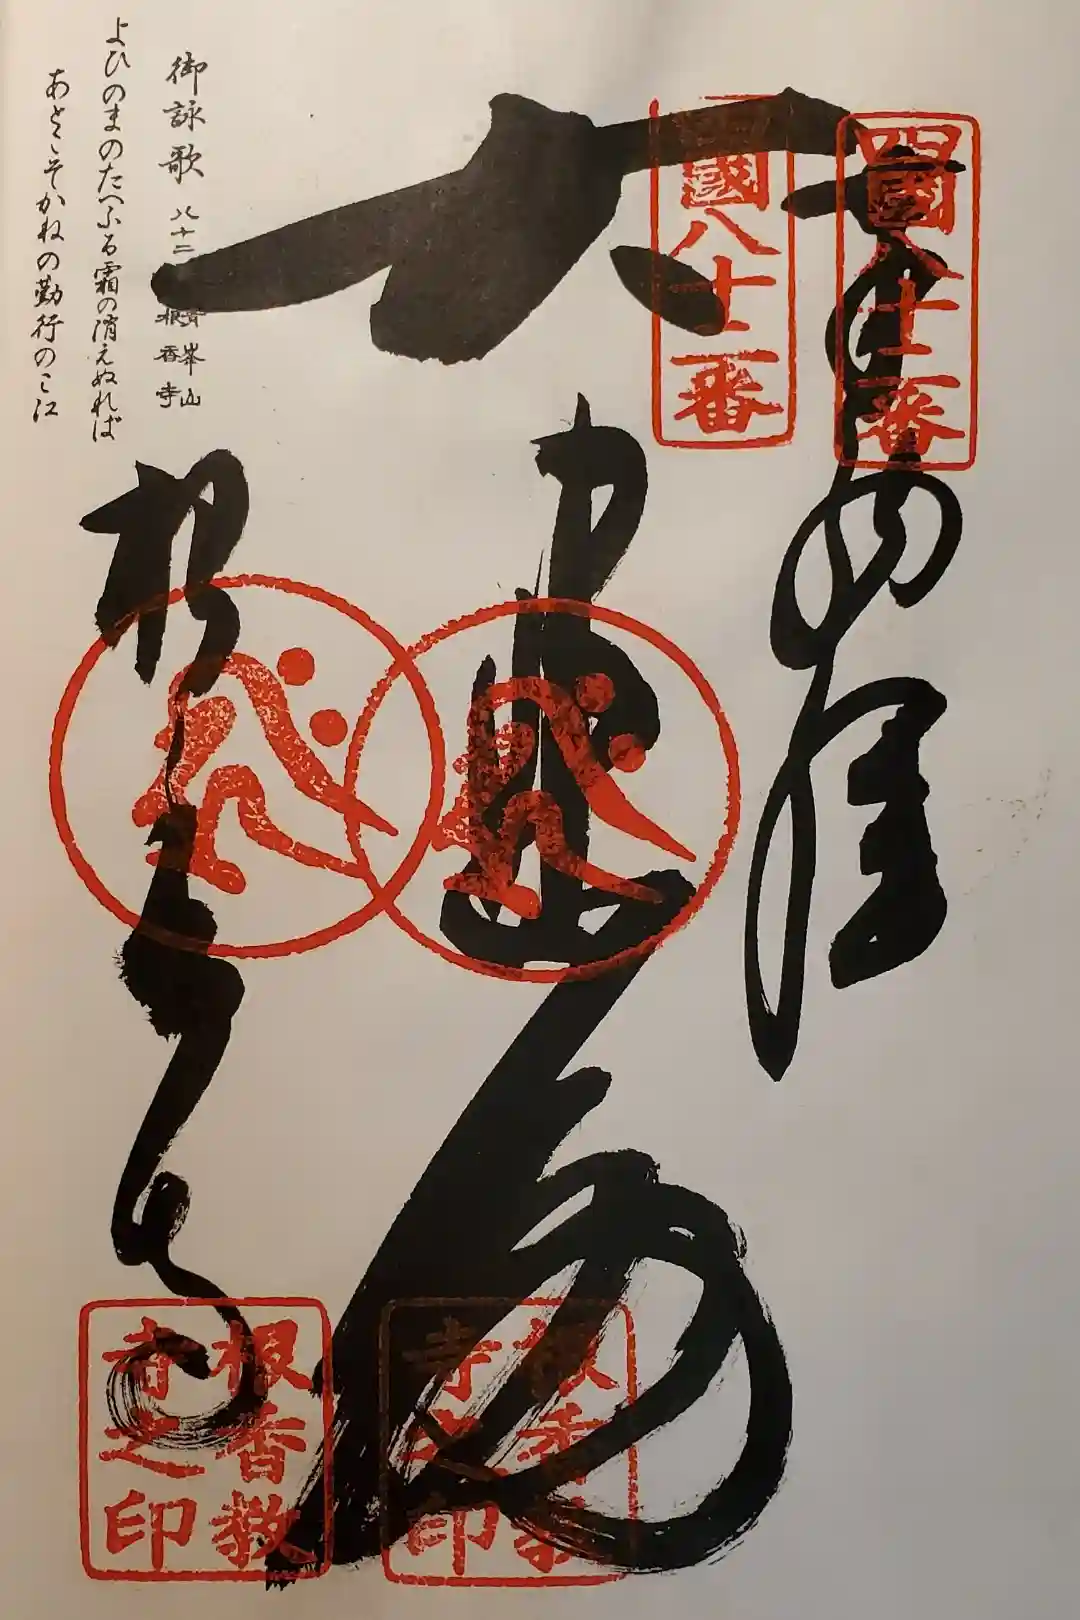 四國八十二番
奉納経
四國八十二番
大悲殿
御詠歌 八十二
峯山
根香寺
よひのまのたへふる霜の消えぬれば
あとこそかねの勤行のこゑ
根香寺
根香教
寺之印
根香教
寺之印